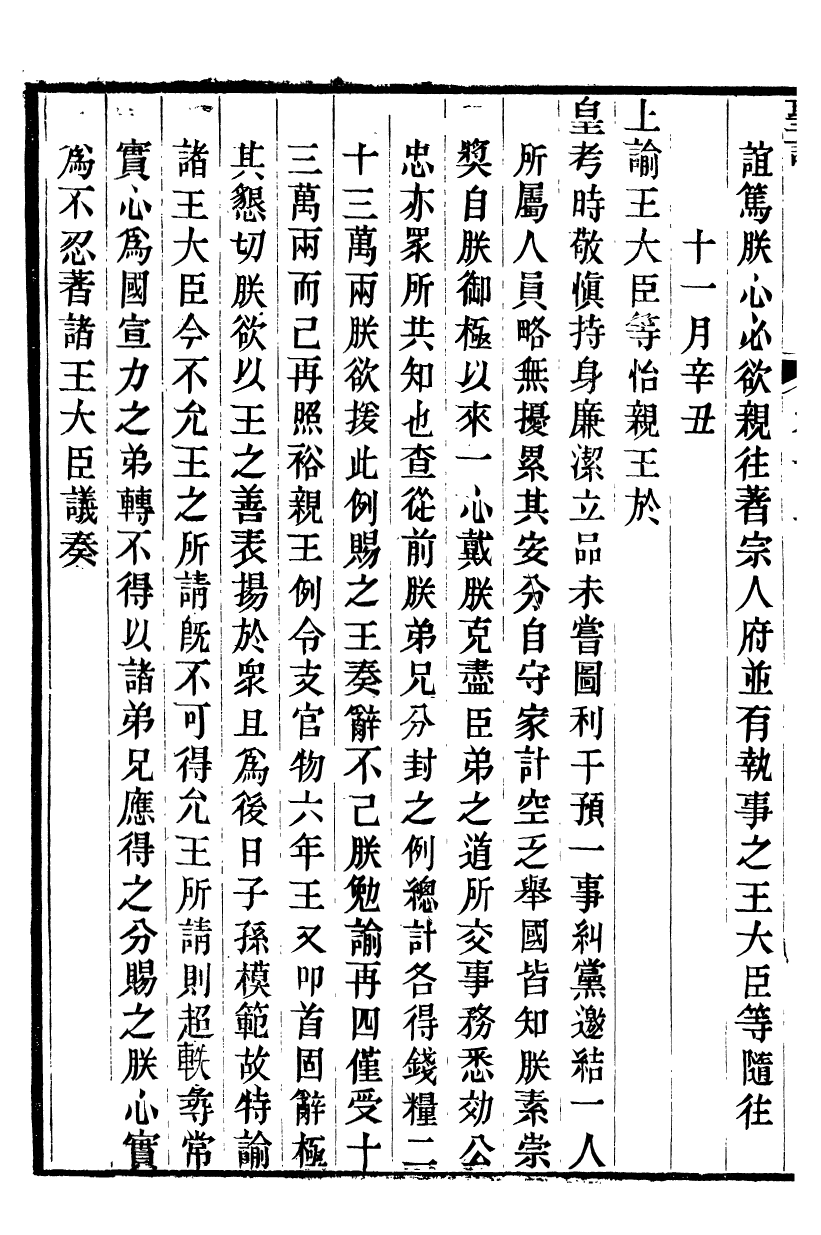 誼篤朕心必欲親往著宗人府並有執事之王大臣等隨往
十一月辛丑
上諭王大臣等怡親王於
皇考時敬愼持身廉潔立品未嘗圖利干預一事糾黨邀結一人
所屬人員略無擾累其安分自守家計空乏舉國皆知朕素崇
獎自朕御極以來一心戴朕克盡臣弟之道所交事務悉効公
忠亦眾所共知也查從前朕弟兄分封之例總計各得錢糧二
十三萬兩朕欲援此例賜之王奏辭不己朕勉諭再四僅受十
三萬兩而己再照裕親王例令支官物六年王又叩首固辭極
其懇切朕欲以王之善表揚於衆且爲後日子孫模範故特諭
諸王大臣今不允王之所請旣不可得允王所請則超軼尋常
實心爲國宣力之弟轉不得以諸弟兄應得之分賜之朕心實
爲不忍著諸王大臣議奏